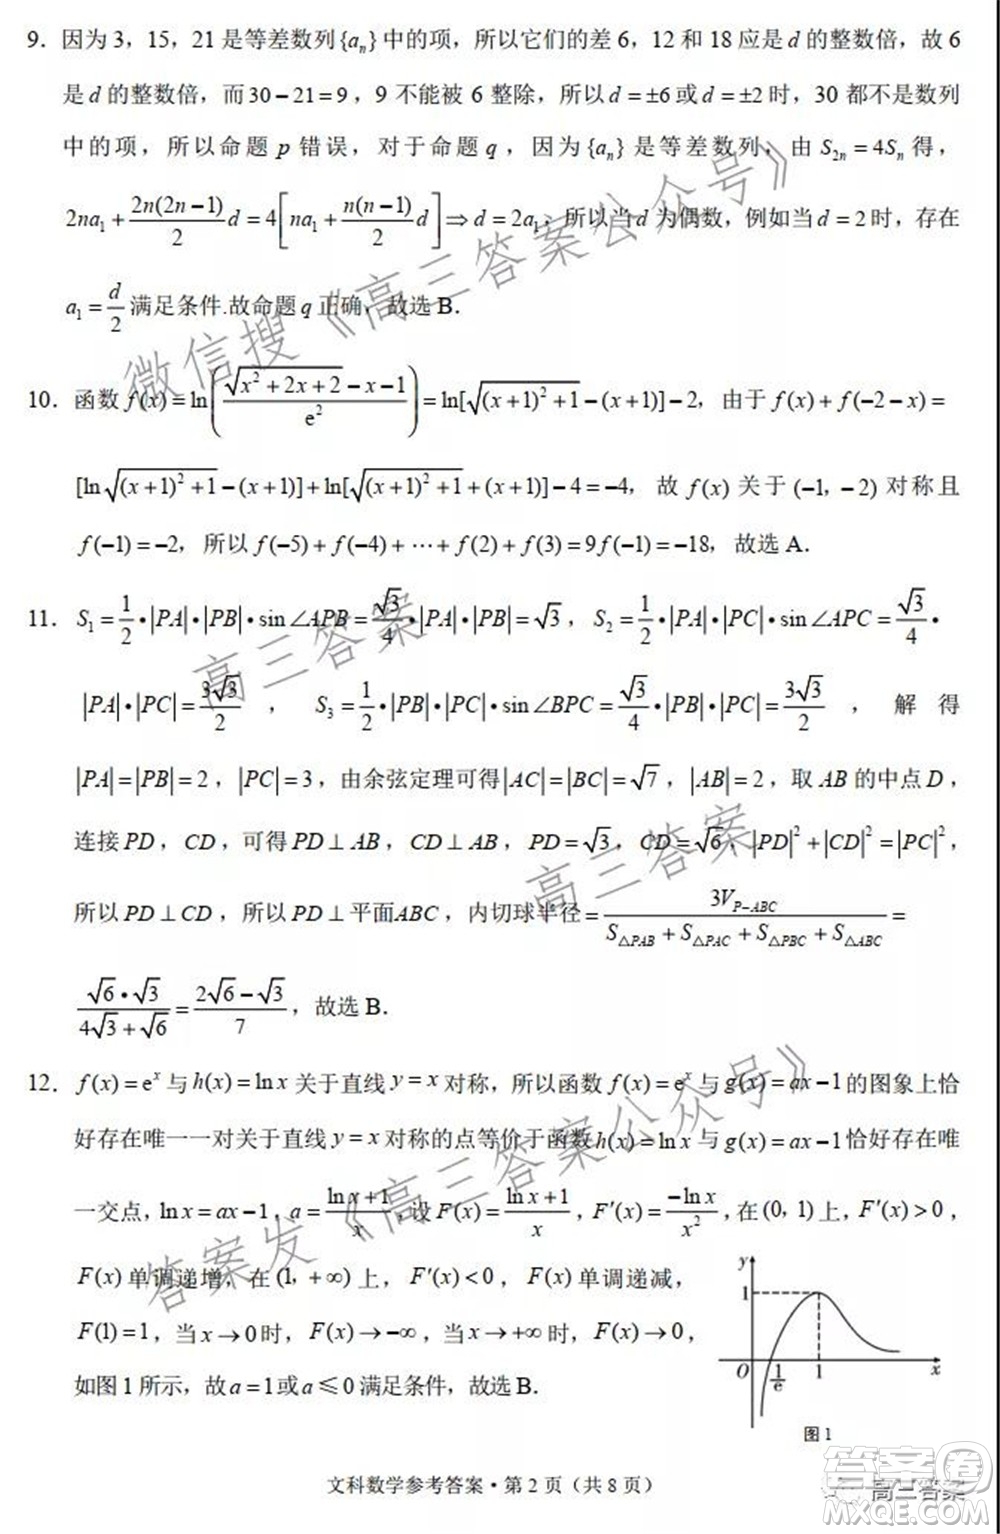 9. 因为 3，15，21 是等差数列{aₙ}中的项，所以它们的差 6，12 和 18 应是 d 的整数倍，故 6
是 d 的整数倍，而 30−21=9，9 不能被 6 整除，所以 d=±6 或 d=±2 时，30 都不是数列
中的项，所以命题 p 错误，对于命题 q，因为{aₙ}是等差数列，由 S₂ₙ=4Sₙ 得，
2na₁+2n(2n−1)/2 d=4[na₁+n(n−1)/2 d]⇒d=2a₁，所以当 d 为偶数，例如当 d=2 时，存在
a₁=d/2 满足条件.故命题 q 正确，故选 B．
10. 函数 f(x)=ln((√(x²+2x+2)−x−1)/e²)=ln[√((x+1)²+1)−(x+1)]−2，由于 f(x)+f(−2−x)=
[ln√((x+1)²+1)−(x+1)]+ln[√((x+1)²+1)+(x+1)]−4=−4，故 f(x) 关于 (−1，−2) 对称且
f(−1)=−2，所以 f(−5)+f(−4)+⋯+f(2)+f(3)=9f(−1)=−18，故选 A．
11. S₁=1/2•|PA|•|PB|•sin∠APB=√3/4•|PA|•|PB|=√3，S₂=1/2•|PA|•|PC|•sin∠APC=√3/4•
|PA|•|PC|=3√3/2，S₃=1/2•|PB|•|PC|•sin∠BPC=√3/4•|PB|•|PC|=3√3/2，解得
|PA|=|PB|=2，|PC|=3，由余弦定理可得|AC|=|BC|=√7，|AB|=2，取 AB 的中点 D，
连接 PD，CD，可得 PD⊥AB，CD⊥AB，PD=√3，CD=√6，|PD|²+|CD|²=|PC|²，
所以 PD⊥CD，所以 PD⊥平面ABC，内切球半径=3V_{P−ABC}/(S_{△PAB}+S_{△PAC}+S_{△PBC}+S_{△ABC})=
√6•√3/(4√3+√6)=(2√6−√3)/7，故选 B．
12. f(x)=eˣ 与 h(x)=ln x 关于直线 y=x 对称，所以函数 f(x)=eˣ 与 g(x)=ax−1 的图象上恰
好存在唯一一对关于直线 y=x 对称的点等价于函数 h(x)=ln x 与 g(x)=ax−1 恰好存在唯
一交点，ln x=ax−1，a=(ln x+1)/x，设 F(x)=(ln x+1)/x，F′(x)=−ln x/x²，在 (0, 1) 上，F′(x)>0，
F(x) 单调递增，在 (1, +∞) 上，F′(x)<0，F(x) 单调递减，
F(1)=1，当 x→0 时，F(x)→−∞，当 x→+∞ 时，F(x)→0，
如图 1 所示，故 a=1 或 a≤0 满足条件，故选 B．
y
1
O
1/e
1
x
图 1
文科数学参考答案·第 2 页（共 8 页）
微信搜《高三答案公众号》
高三答案
高三答案
答案发《高三答案公众号》
高三答案